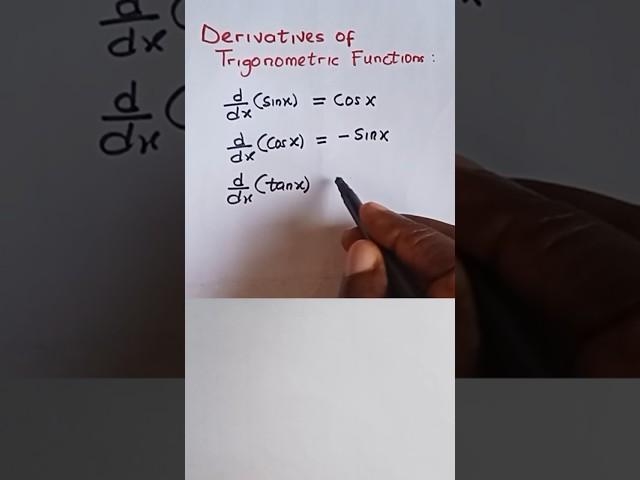 Derivatives of
Trigonometric Functions:
d/dx (sinx) = Cosx
d/dx (Cosx) = -Sinx
d/dx (tanx)
d
dx
d
dx